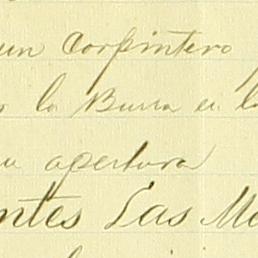 un carpintero
la Burra en la
su apertura
ntes Las M